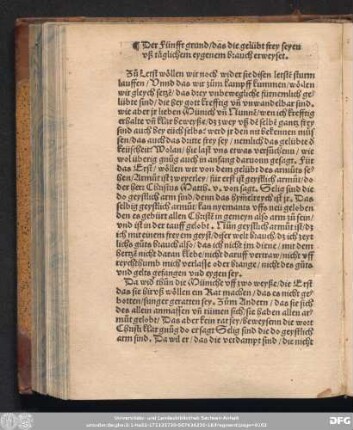 ¶ Der Fünfft grund/das die gelübt frey seyen
vß täglichem eygenem brauch erweyset.
Zů Letst wöllen wir noch wider sie disen letste sturm
lauffen/Vnnd das wir zům kampff kummen/wöllen
wir gleych setzē/das drey vnbewegliche fürnemlich ge
lübte sind/die bey gott krefftig vñ vnwandelbar sind.
wie aber jr lieben Münch vñ Nunnē/wen ich krefftig
erhalte vñ klar beweyse/dz zwey vß dē selbē gantz frey
sind auch bey eüch selbs: werd jr den nit bekennen müs
sen/das auch das dritte frey sey/nemlich das gelübte d
keüscheit? Wolan/sie laßt vns etwas versůchenn/wie
wol überig gnůg auch in anfang daruonn gesagt. Für
das Erst/wöllen wir von dem gelübt des armůts se-
hen/Armůt ist zweyerley/sie erst ist geystlich armůt/do
der herr Christus Matth. v. von sagt. Selig sind die
do geystlich arm sind/denn das hymelreych ist jr. Das
selbig geystlich armůt kan nyemants vffs new geloben
den es gebürt allen Christē in gemeyn also arm zů sein/
vnd ist in der tauff gelobt. Nun geystlich armůt ist/dz
ich mit einem frey em geyst/diser welt brauch/dz ich zeyt
lichs gůts brauch also/das ich nicht jm diene/mit dem
hertzē nicht daran klebe/nicht daruff vertraw/nicht vff
reychthumb mich verlasse oder hange/nicht des gůts
vnd gelts gefangen vnd eygen sey.
Da wid' thůn die Münche vff zwo weyße/die Erst
das sie hirvß wöllen ein Rat machen/das es nicht ge-
botten/sunger geratten sey. Zům Andern/das sie sich
des allein anmassen vñ rümen sich sie haben allen ar-
můt gelobt/Das aber kein rat sey/beweysenn die wort
Christi klar gnůg do er sagt Selig sind die do geystlich
arm sind. Da wil er/das die verdampt sind/die nicht